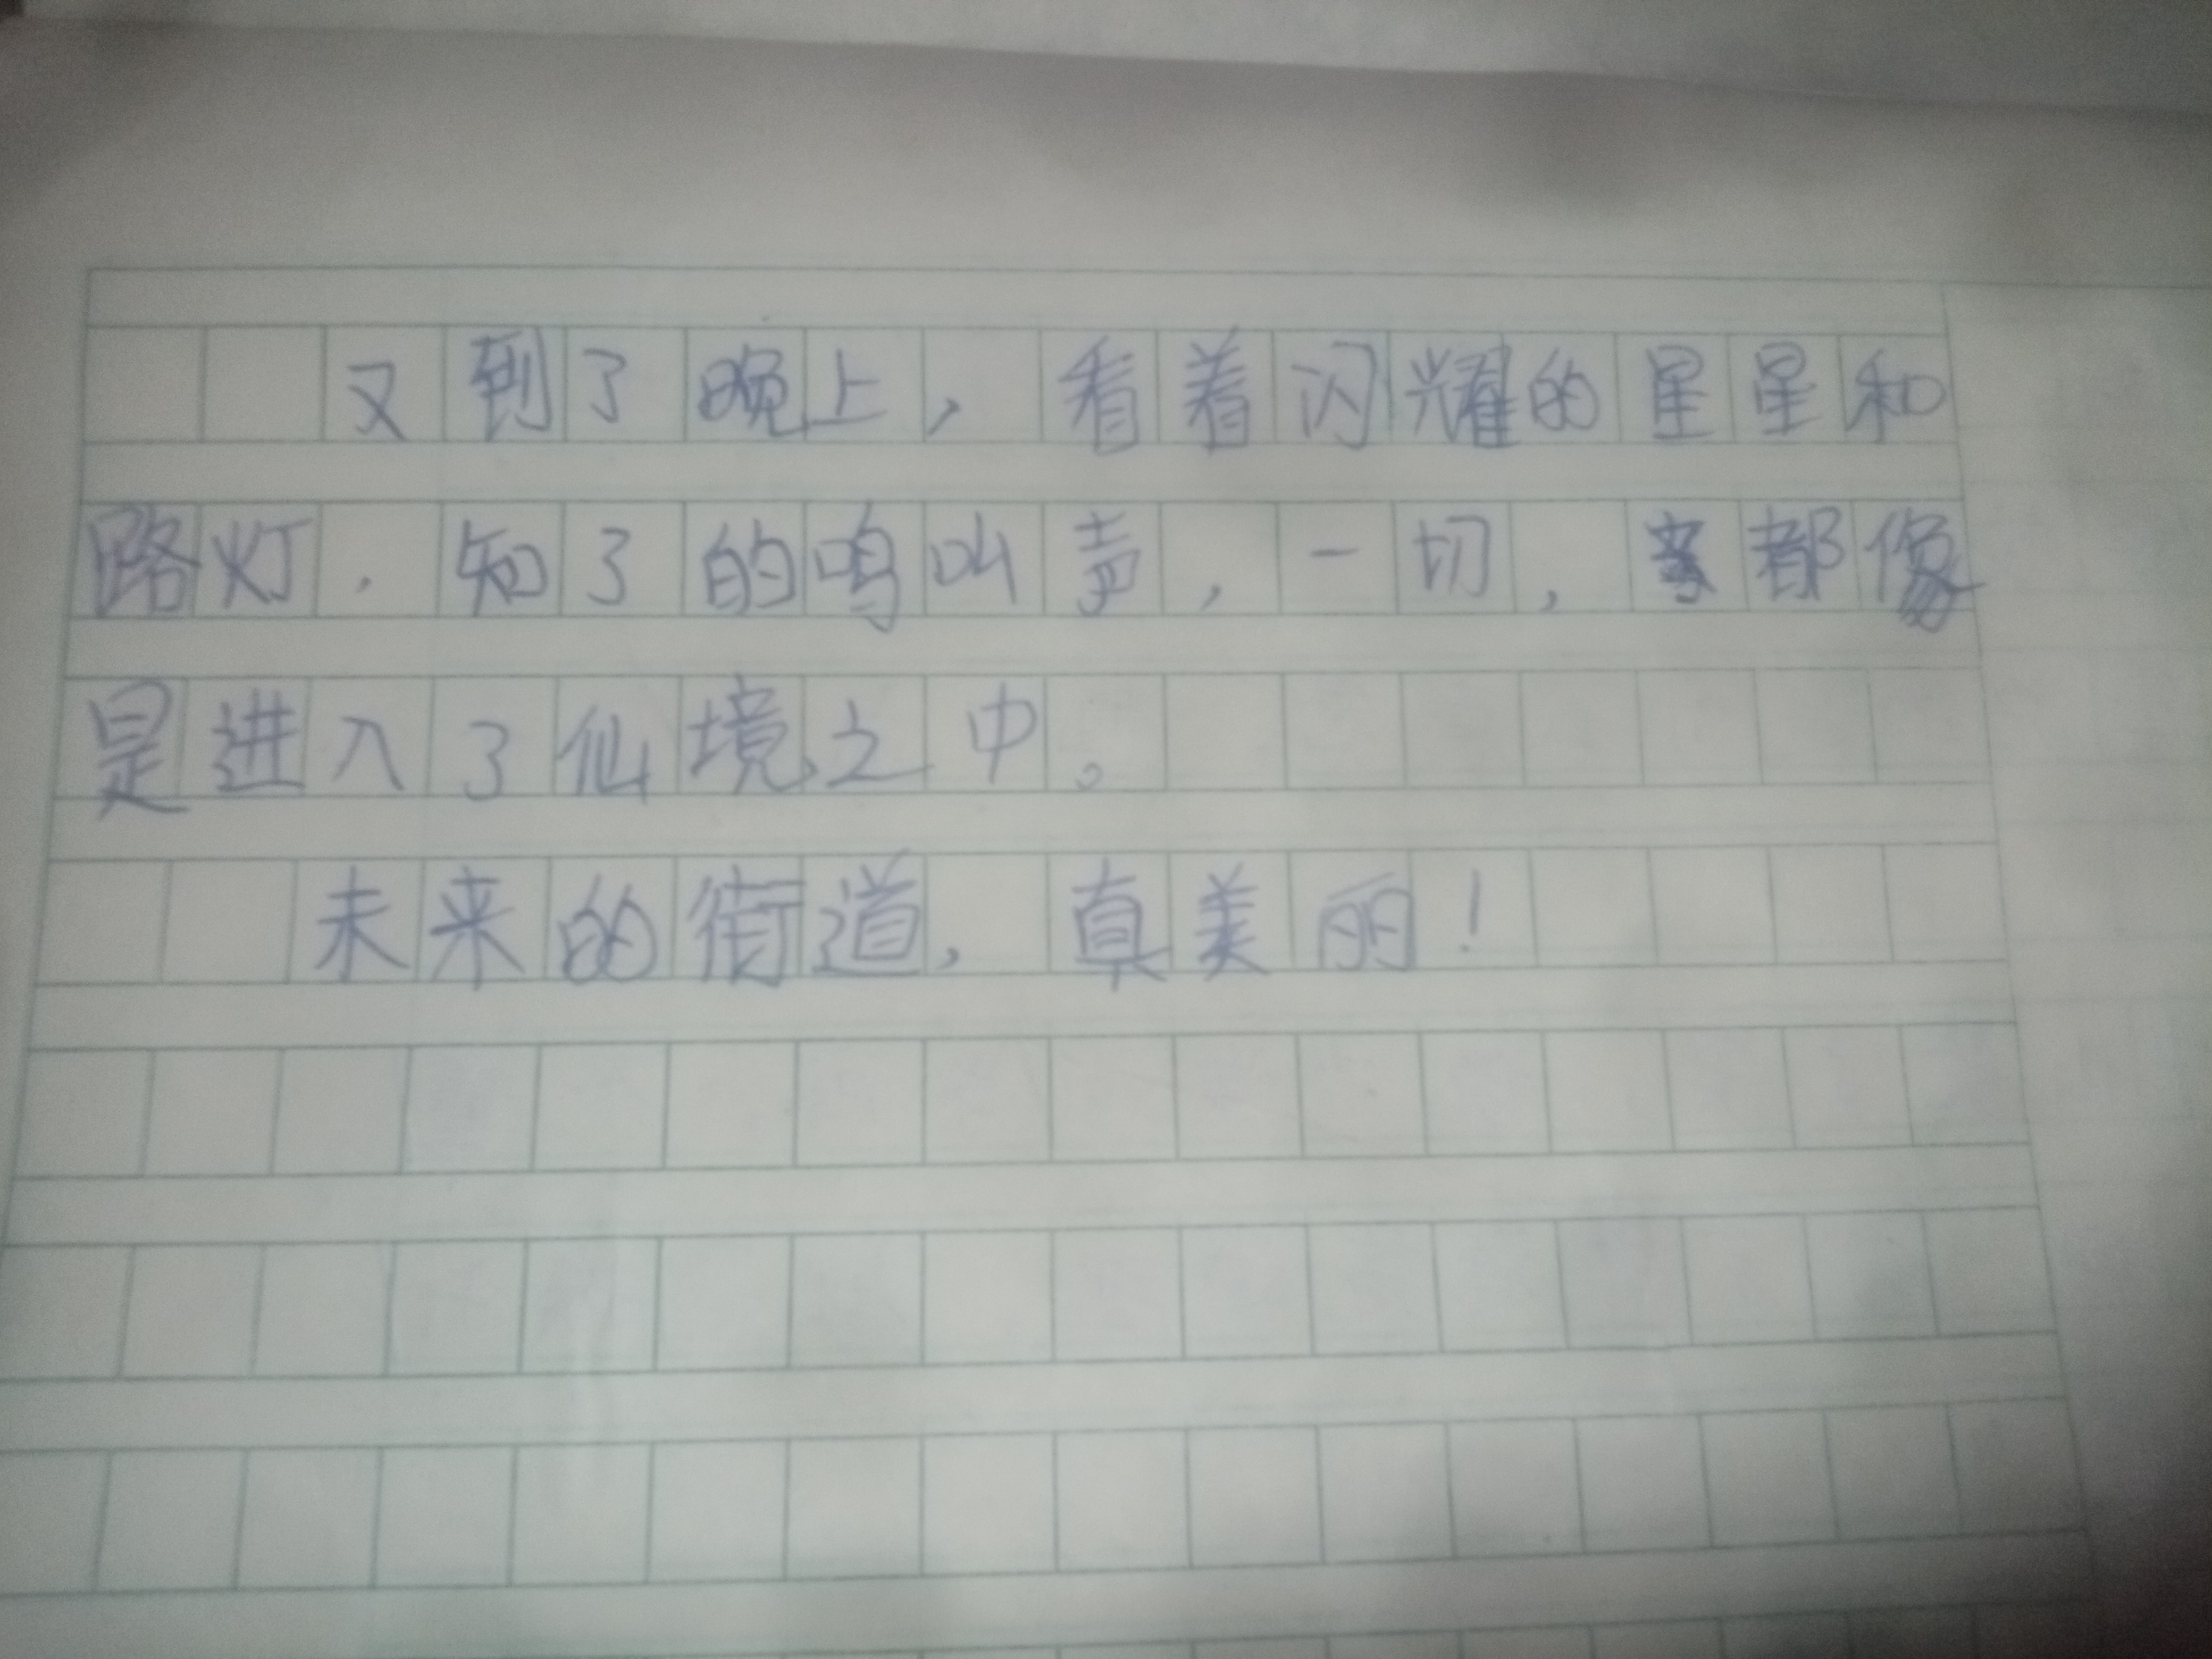 又到了晚上，看着闪耀的星星和
路灯，知了的鸣叫声，一切，都像
是进入了仙境之中。
未来的街道，真美丽！